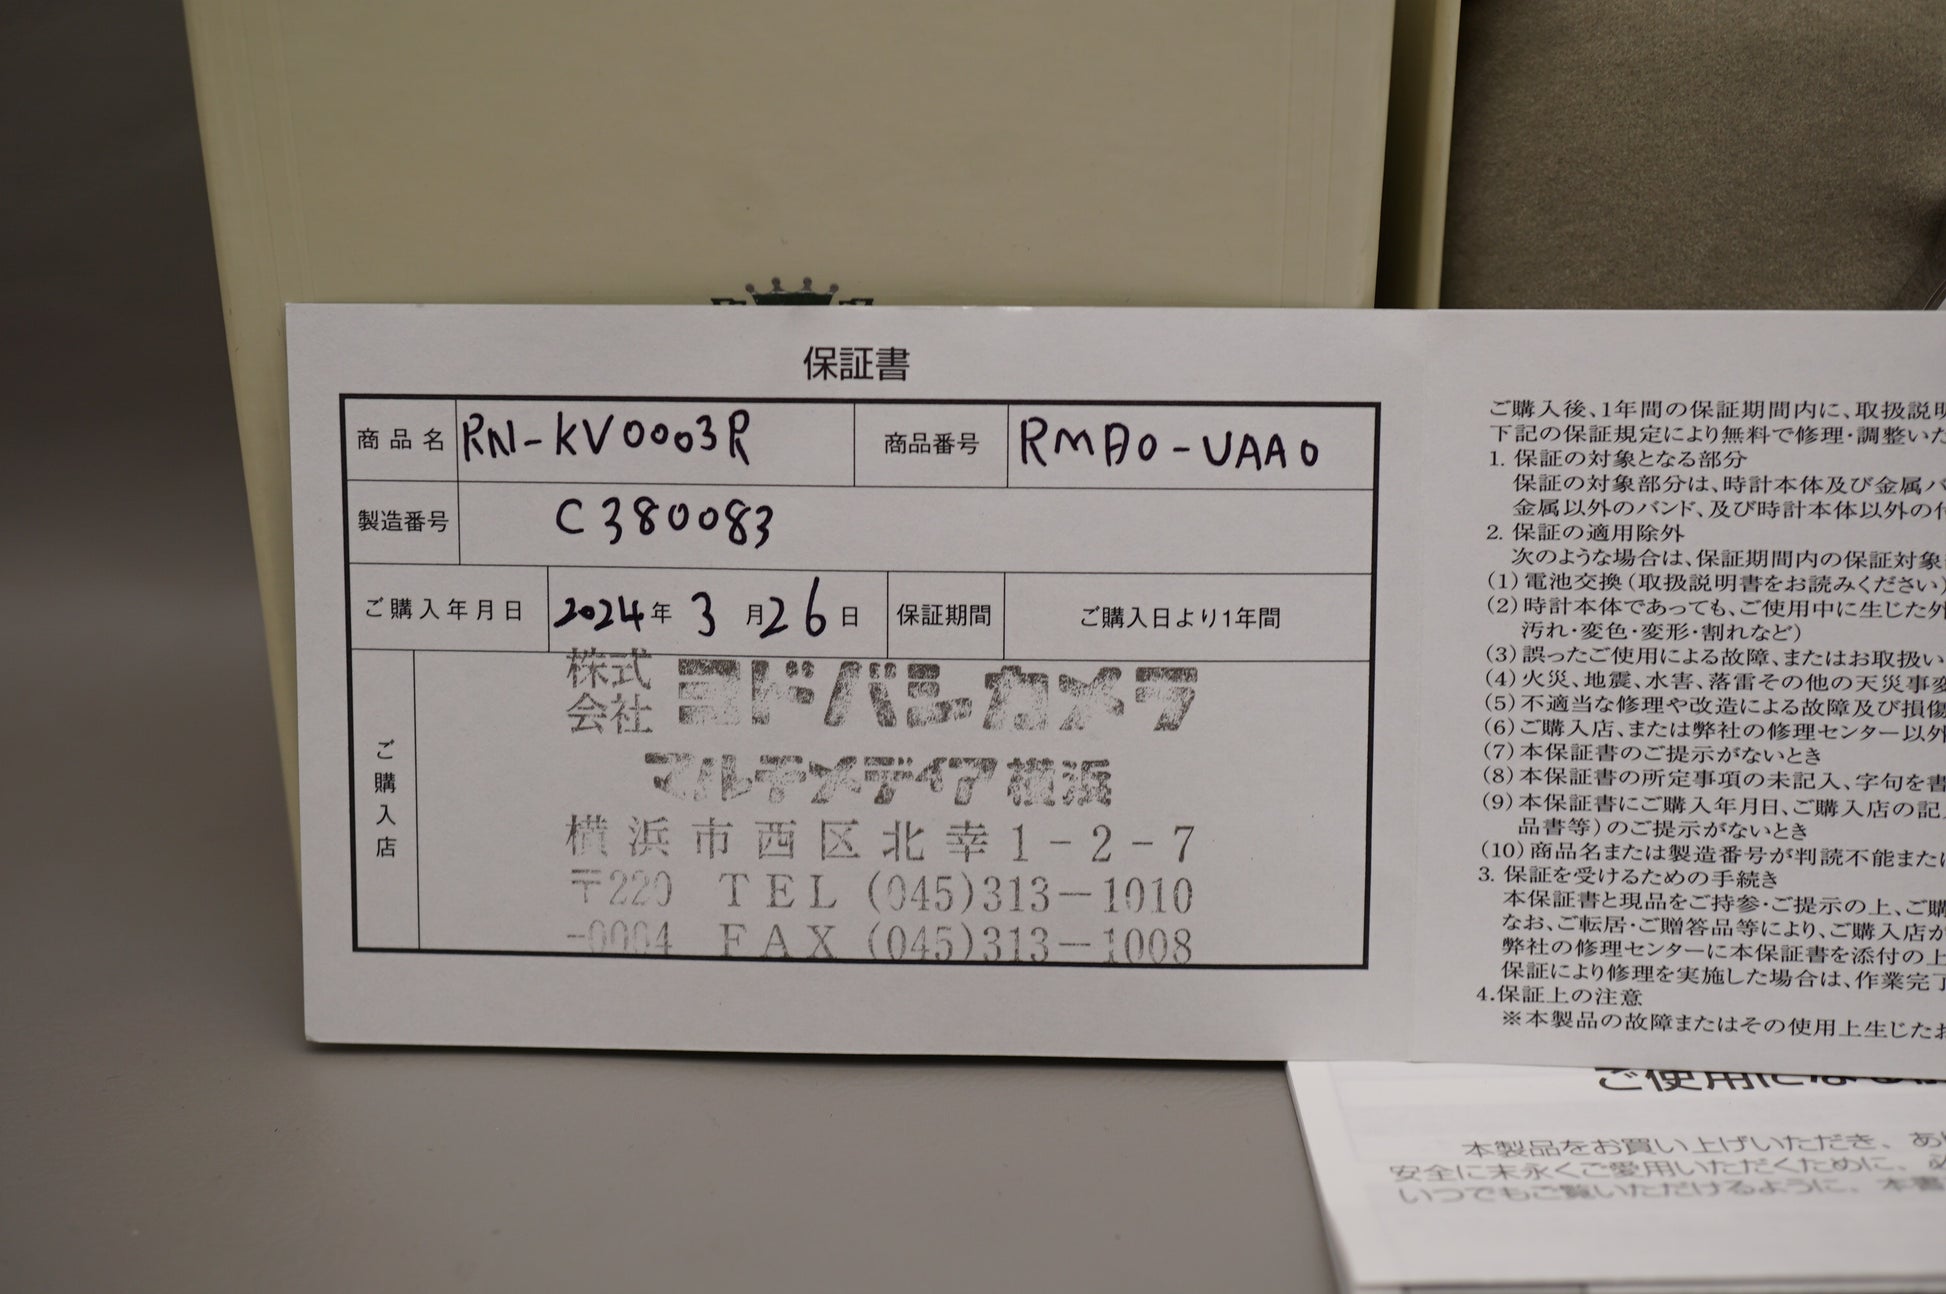 保証書
商品名 RN-KV0003R 商品番号 RMA0-UAA0
製造番号 C380083
ご購入年月日 2024年 3月26日 保証期間 ご購入日より1年間
ご購入店
株式会社 ヨドバシカメラ
マルチメディア横浜
横浜市西区北幸1-2-7
〒220 TEL (045)313-1010
-0004 FAX (045)313-1008
ご購入後、1年間の保証期間内に、取扱説明
下記の保証規定により無料で修理・調整いた
1. 保証の対象となる部分
保証の対象部分は、時計本体及び金属バ
金属以外のバンド、及び時計本体以外の付
2. 保証の適用除外
次のような場合は、保証期間内の保証対象
(1) 電池交換(取扱説明書をお読みください)
(2) 時計本体であっても、ご使用中に生じた外
汚れ・変色・変形・割れなど)
(3) 誤ったご使用による故障、またはお取扱い
(4) 火災、地震、水害、落雷その他の天災事変
(5) 不適当な修理や改造による故障及び損傷
(6) ご購入店、または弊社の修理センター以外
(7) 本保証書のご提示がないとき
(8) 本保証書の所定事項の未記入、字句を書
(9) 本保証書にご購入年月日、ご購入店の記入
品書等)のご提示がないとき
(10) 商品名または製造番号が判読不能または
3. 保証を受けるための手続き
本保証書と現品をご持参・ご提示の上、ご購
なお、ご転居・ご贈答品等により、ご購入店が
弊社の修理センターに本保証書を添付の上
保証により修理を実施した場合は、作業完了
4.保証上の注意
※本製品の故障またはその使用上生じたお
本製品をお買い上げいただき、あり
安全に末永くご愛用いただくために、必
いつでもご覧いただけるように、本書